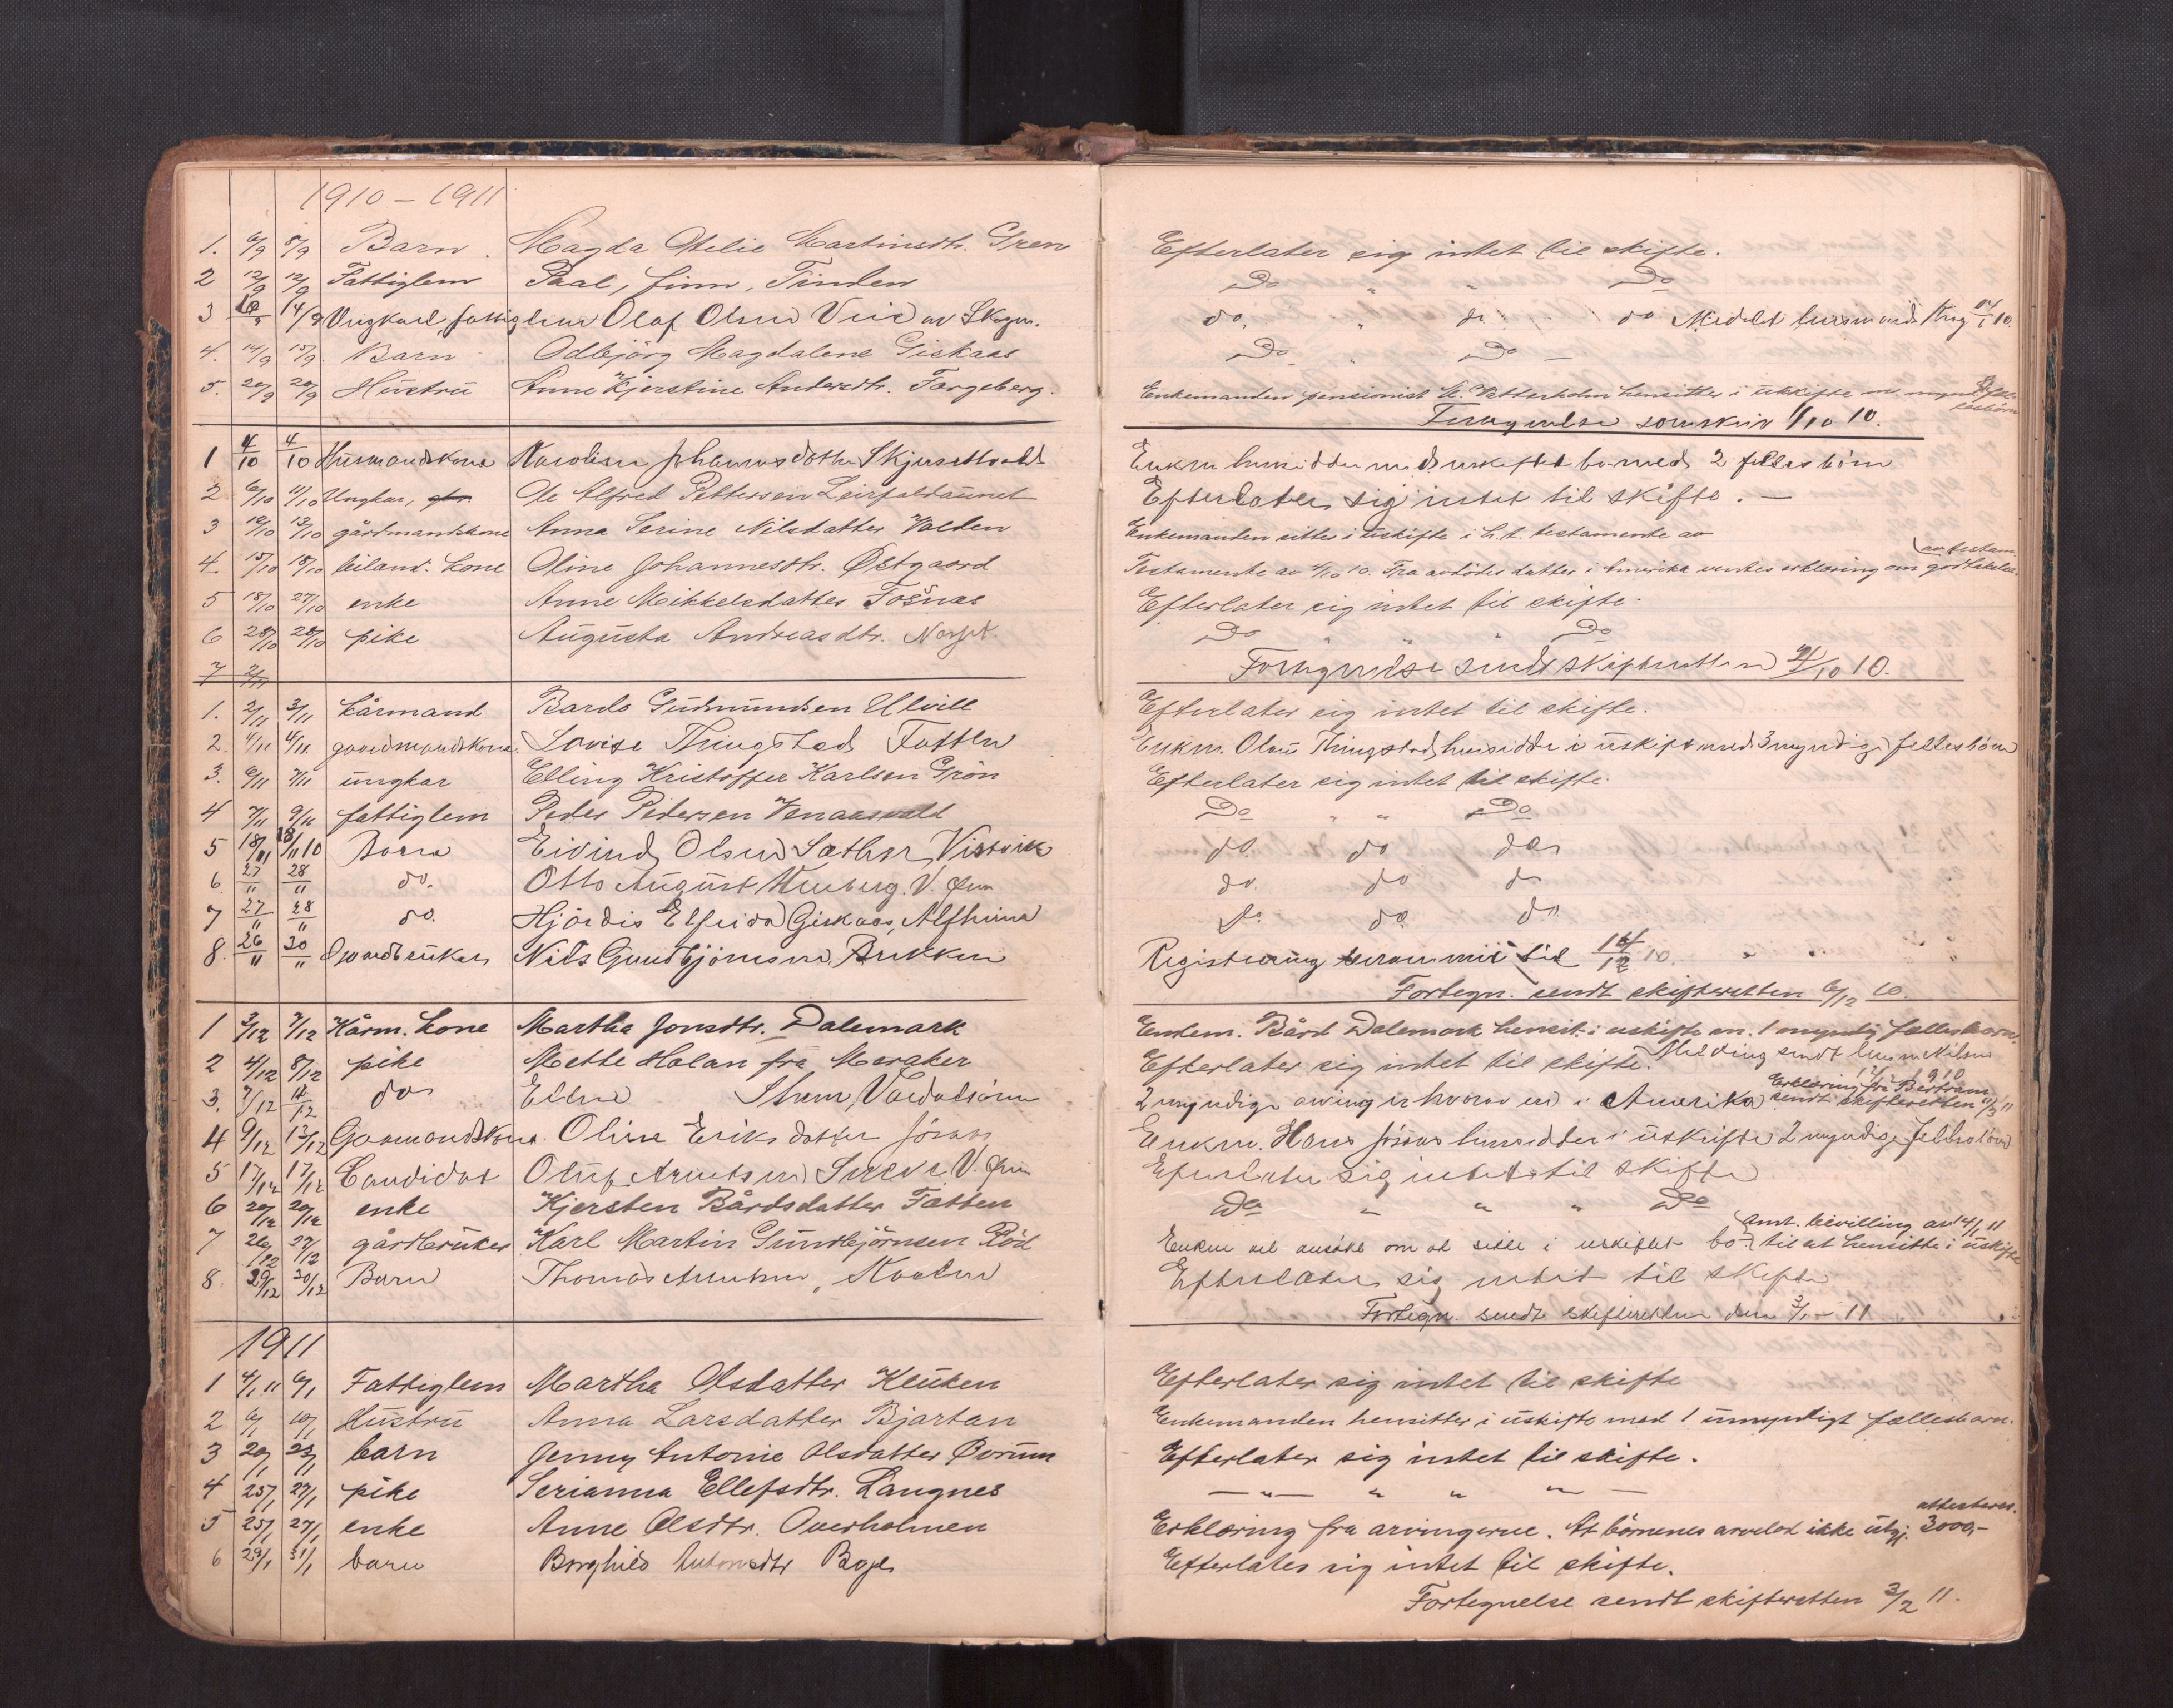 1910 – 1911
1. 6/9 8/9 Barn. Magda Otelie Martinsdtr. Gren Efterlater sig intet til skifte.
2 12/9 12/9 Fattiglem Paal, finn, Tinden Do " " Do
3 14/9 Ungkarl, fattiglem Olaf Olsen do. " do do Meddelt lensmand
4. 14/9 15/9 Barn Odbjörg Magdalene Giskaas Do " Do –
5. 20/9 20/9 Hustru Anne Kjerstine Andersdtr. Torgeberg. Enkemanden pensionist hensitter i uskifte m.
1/10 10.
1 4/10 4/10 Husmandskone Karoline Johannesdotter 2 fellesbörn
2 6/10 11/10 Ungkar, Ole Alfred Pettersen Leirfaldaunet Efterlater sig intet til skifte. –
3 10/10 13/10 gårdmandskone Anna Serine Nilsdatter Valden Enkemanden sitter i uskifte i h. t. testamente av
4. 15/10 18/10 leiland. kone Oline Johannesdtr. Östgaard Testamente av 10. Fra avdödes datter i Amerika ventes erklæring om godkjendelse av testam.
5 18/10 27/10 enke Anne Mikkelsdatter Fosnas Efterlater sig intet til skifte.
6 28/10 28/10 pike Augusta Andreasdtr. Do " " " Do
7 2/11 Fortegnelse sendt skifteretten 10.
1. 2/11 3/11 kårmand Bardo Gudmundsen Ulvill Efterlater sig intet til skifte.
2. 4/11 4/11 gaardmandskone. Lovise Thingstad Fatten Enkm. Olaus Thingstad hensidder i uskifte med 3 myndige fellesbörn
3. 6/11 7/11 ungkar Elling Kristoffer Karlsen Grön Efterlater sig intet til skifte.
4 7/11 9/11 fattiglem Peder Pedersen Venaasvald Do " " Do
5 18/11 18/11 10 Barn Eivind Olsen Sæther, Vistvik do. do do
6. 27/" 28/" do. Otto August V. do. do do
7 27/" 28/" do. Hjördis Elfrida Giskaas, do. do. do.
8. 26/" 30/" Gaardbruker Nils Gundbjörnsen, Brekken Registrering til 12 10. " "
Fortegn. sendt skifteretten 6/12 10.
1 3/12 7/12 Kårm. kone Martha Jonsdtr. Dalemark Enkem. Bård Dalemark hensit. i uskifte m. 1 myndig fællesbarn.
2 4/12 8/12 pike Mette Holan fra Meraker Efterlater sig intet til skifte. Melding sendt
1910
3. 7/12 12 do Ellen 2 myndige arvinger hvorav en i Amerika Erklæring fra Bertram sendt skifteretten
4 9/12 13/12 Oline Eriksdatter Jösaas Enkm. Hans Jösaas hensidder i uskifte 2 myndige fellesbörn
5 17/12 17/12 Candidat Oluf V. Efterlater sig intet til skifte
6 20/12 20/12 enke Kjersten Bårdsdatter Fatten Do " " " Do
7 26/12 27/12 gårdbruker Karl Martin Gundbjörnsen Röd Enken vil ansöke om at sitte i uskiftet bo. Amt. bevilling av 11 til at hensitte i uskifte
8. 29/12 30/12 Barn Thomas Efterlater sig intet til skifte
Fortegn. sendt skifteretten den 3/1 – 11
1911
1 4/1 11 6/1 Fattiglem Martha Olsdatter Kluken Efterlater sig intet til skifte
2 6/1 10/1 Hustru Anna Larsdatter Bjartan Enkemanden hensitter i uskifte med 1 umyndigt fællesbarn.
3 20/1 23/1 barn Jenny Antonie Olsdatter Övrum Efterlater sig intet til skifte.
4 25/1 27/1 pike Serianna Ellefsdtr. Langnes – " – " " " –
5 25/1 27/1 enke Anne Olsdtr. Overholmen Erklæring fra arvingerne. At börnenes arvelod ikke utgj. 3000,– attesteres.
6 29/1 31/1 barn Borghild Antonsdtr Efterlates sig intet til skifte.
Fortegnelse sendt skifteretten 3/2 11.